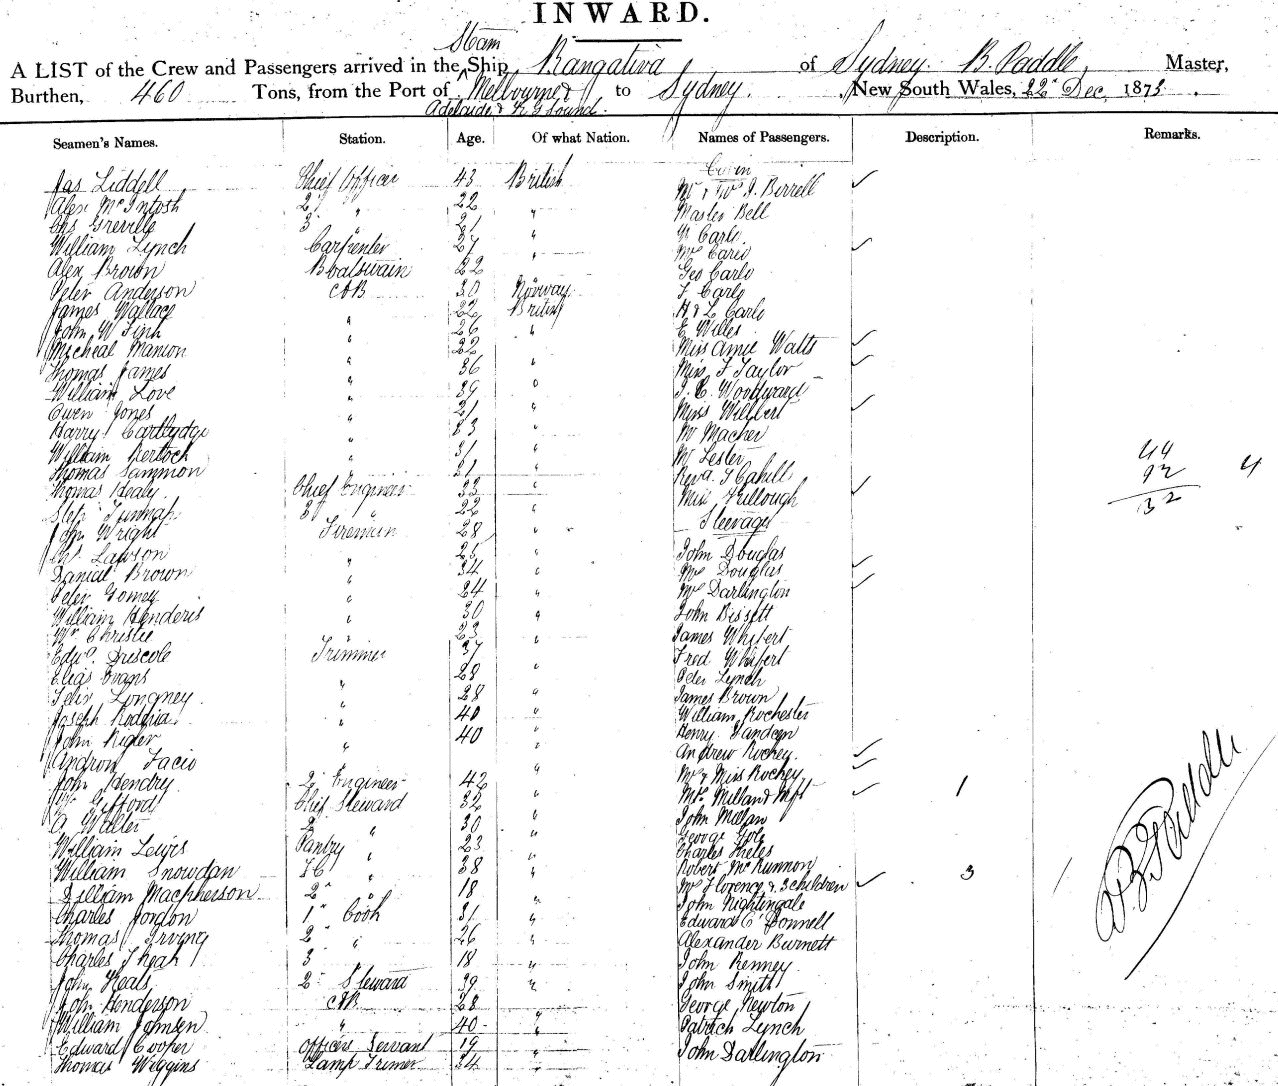 INWARD.
Steam
A LIST of the Crew and Passengers arrived in the Ship Rangatira of Sydney B. Paddle, Master,
Burthen, 460 Tons, from the Port of Melbourne & to Sydney. New South Wales, 22" Dec. 1875.
Adelaide & K G Sound.
Seamen's Names. Station. Age. Of what Nation. Names of Passengers. Description. Remarks.
Cabin
Jas Liddell Chief Officer 43 British Mr & J. Birrell
Alex McIntosh 2" " 22 " Master Bell
Chs Greville 3" " 21 " Carlo
William Lynch Carpenter 27 " Carlo
Alex Brown Boatswain 22 " Geo Carlo
Peter Anderson AB 30 Norway F Carlo
James Wallace " 22 British H & L Carlo
John W Fink " 26 " E Willes
Micheal Manion " 22 Miss Amie Watts
Thomas James " 36 " Miss F Taylor
William Love " 39 " Woodward
Owen Jones " 21 " Miss
Harry Cartlydge " 23 " Mr Macher
William " 31 " Mr Lester
Thomas Sammon " 21 " Revd. J Cahill
Thomas Healy. Chief Engineer 32 " Miss Killough
3" " 22 " Steerage
John Wright Firemen 28 "
Lawson " " John Douglas
Daniel Brown " 34 " Mrs Douglas
Peter Gomey " 24 " Mrs Darlington
William Henderis " 30 " John Bissett
Wm Christie " 23 " James
Edwd. Driscole Trimmer 37 " Fred
Elias Evans " 28 " Peter Lynch
Felix Longney. " 28 " James Brown
Joseph Roderia. " 40 " William Rochester
John Rigler " 40 " Henry
Andron Facio " " Andrew Rochey.
John Hendry 2" Engineer 42 " Mrs & Miss Rochey
Gifford Chief Steward 32 " Millan & 1
A Walter 2" " 30 " John Millan
William Lewis Pantry " 23 " George
William Snowdan " 38 " Robert McKunnon
William Macpherson 2" " 18 " Mrs Florence & 3 children 3
Charles Jordon 1" Cook 31 " John Nightingale
Thomas Irving 2" " 26 " Edward O'Donnell
Charles 3" 18 " Alexander Burnett
John Heals 2" Steward 39 " John Kenney
John Henderson AB 28 John Smith
William " 40 " George Newton
Edward Cooper Officers Servant 19 Patrick Lynch
Thomas Wiggins Lamp Trimer 34 " John Darlington
44
92
32
4
B Paddle